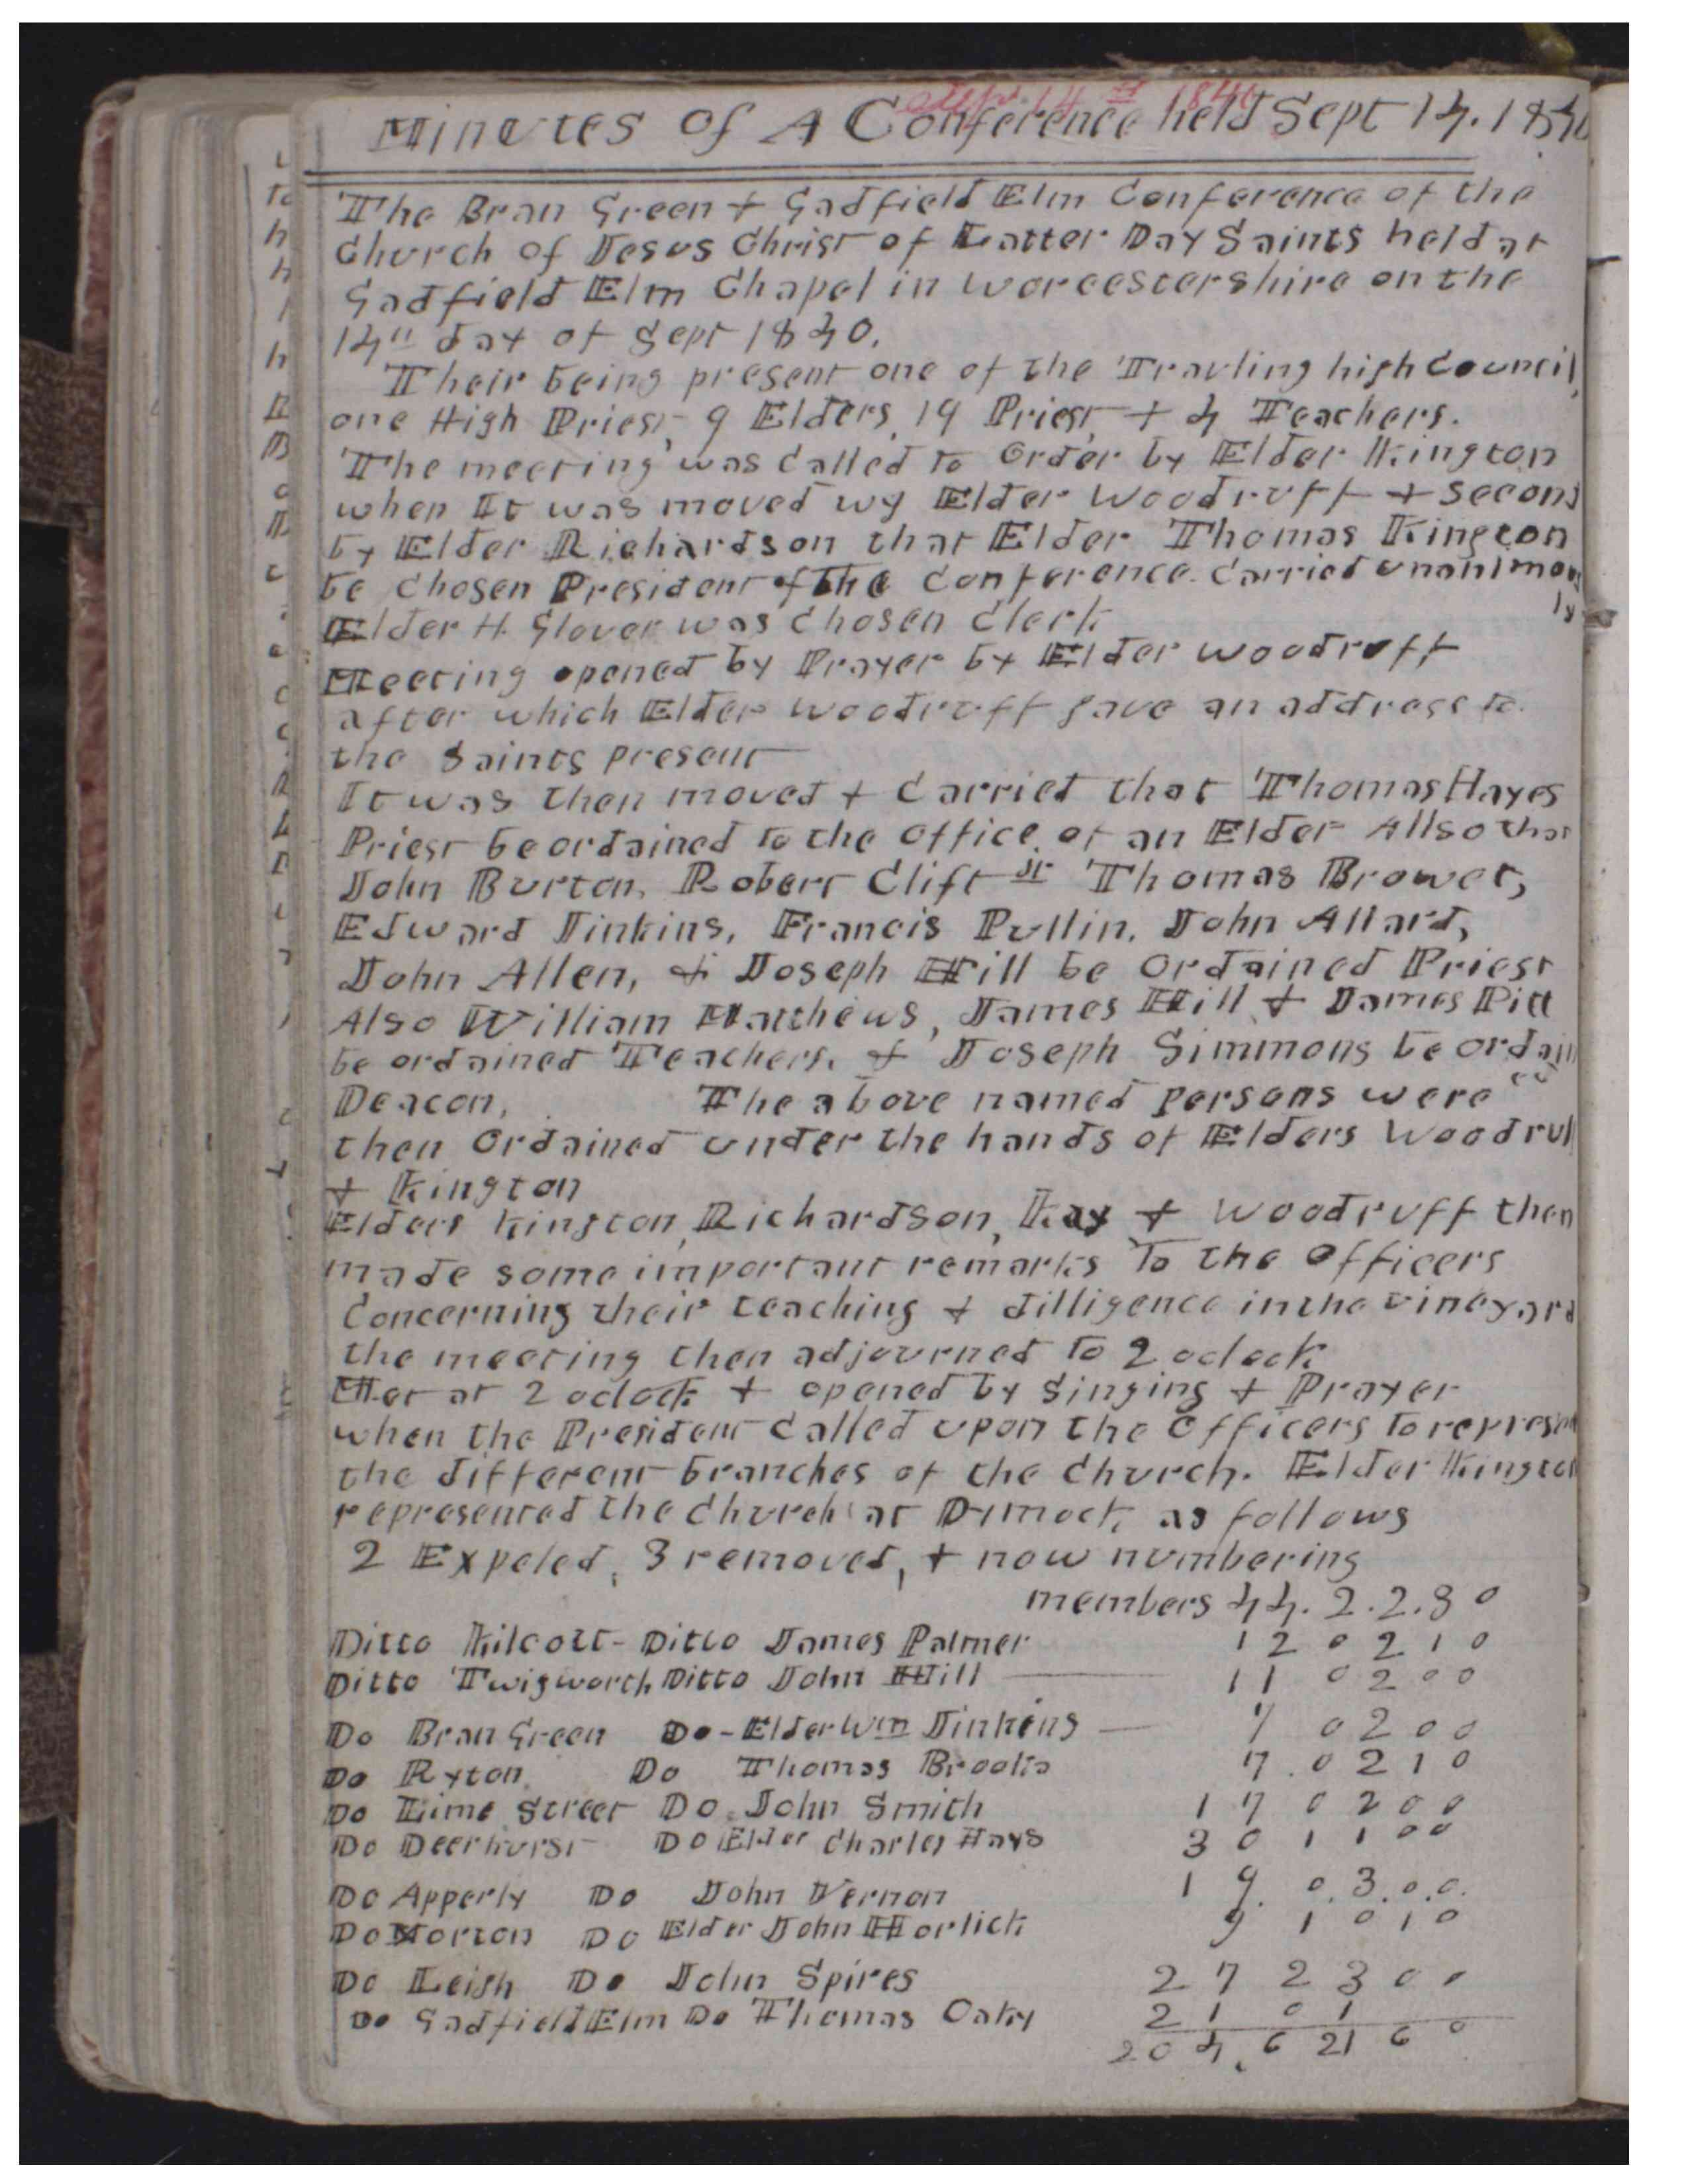 Sept. 14th 1840
Minutes of A Conference held Sept 14. 1840
The Bran Green & Gadfield Elm Conference of the
Church of Jesus Christ of Latter Day Saints held at
Gadfield Elm Chapel in Worcestershire on the
14th day of Sept 1840.
Their being present one of the Travling high Council,
one High Priest, 9 Elders, 19 Priest, & 4 Teachers.
The meeting was called to order by Elder Kington
when It was moved wy Elder Woodruff & Second
by Elder Richardson that Elder Thomas Kington
be chosen President of the Conference. Carried unanimous
ly
Elder H. Glover was chosen Clerk
Meeting opened by Prayer by Elder Woodruff
after which Elder Woodruff gave an address to
the Saints present
It was then moved & Carried that Thomas Hayes
Priest be ordained to the office of an Elder Allso that
John Burton, Robert Clift Jr Thomas Brower,
Edward Jinkins, Francis Pullin, John Allard,
John Allen, & Joseph Hill be Ordained Priest
Also William Matthews, James Hill & James Pitt
be ordained Teachers, & Joseph Simmons be ordain
ed
Deacon, The above named persons were
then Ordained under the hands of Elders Woodruf
& Kington
Elders Kington, Richardson, Kay & Woodruff then
made some important remarks To the officers
Concerning their teaching & dilligence in the vineyard
the meeting then adjourned to 2 oclock
Met at 2 oclock & opened by Singing & Prayer
when the President Called upon the Officers to represent
the different branches of the Church. Elder Kington
represented the Church at Dymock, as follows
2 Expeled, 3 removed, & now numbering
members 44. 2. 2. 3 0
Ditto Kilcott - Ditto James Palmer 12 0 2 1 0
Ditto Twigworth Ditto John Hill 11 0 2 0 0
Do Bran Green Do - Elder Wm Jinkins 7 0 2 0 0
Do Ryton Do Thomas Brooks 7. 0 2 1 0
Do Lime Street Do John Smith 17 0 2 0 0
Do Deerhurst Do Elder Charles Hays 30 1 1 0 0
Do Apperly Do John Vernon 19. 0. 3. 0. 0.
Do Norton Do Elder John Horlick 9 1 0 1 0
Do Leigh Do John Spires 27 2 3 0 0
Do Gadfield Elm Do Thomas Oaky 21 0 1
204. 6 21 6 0